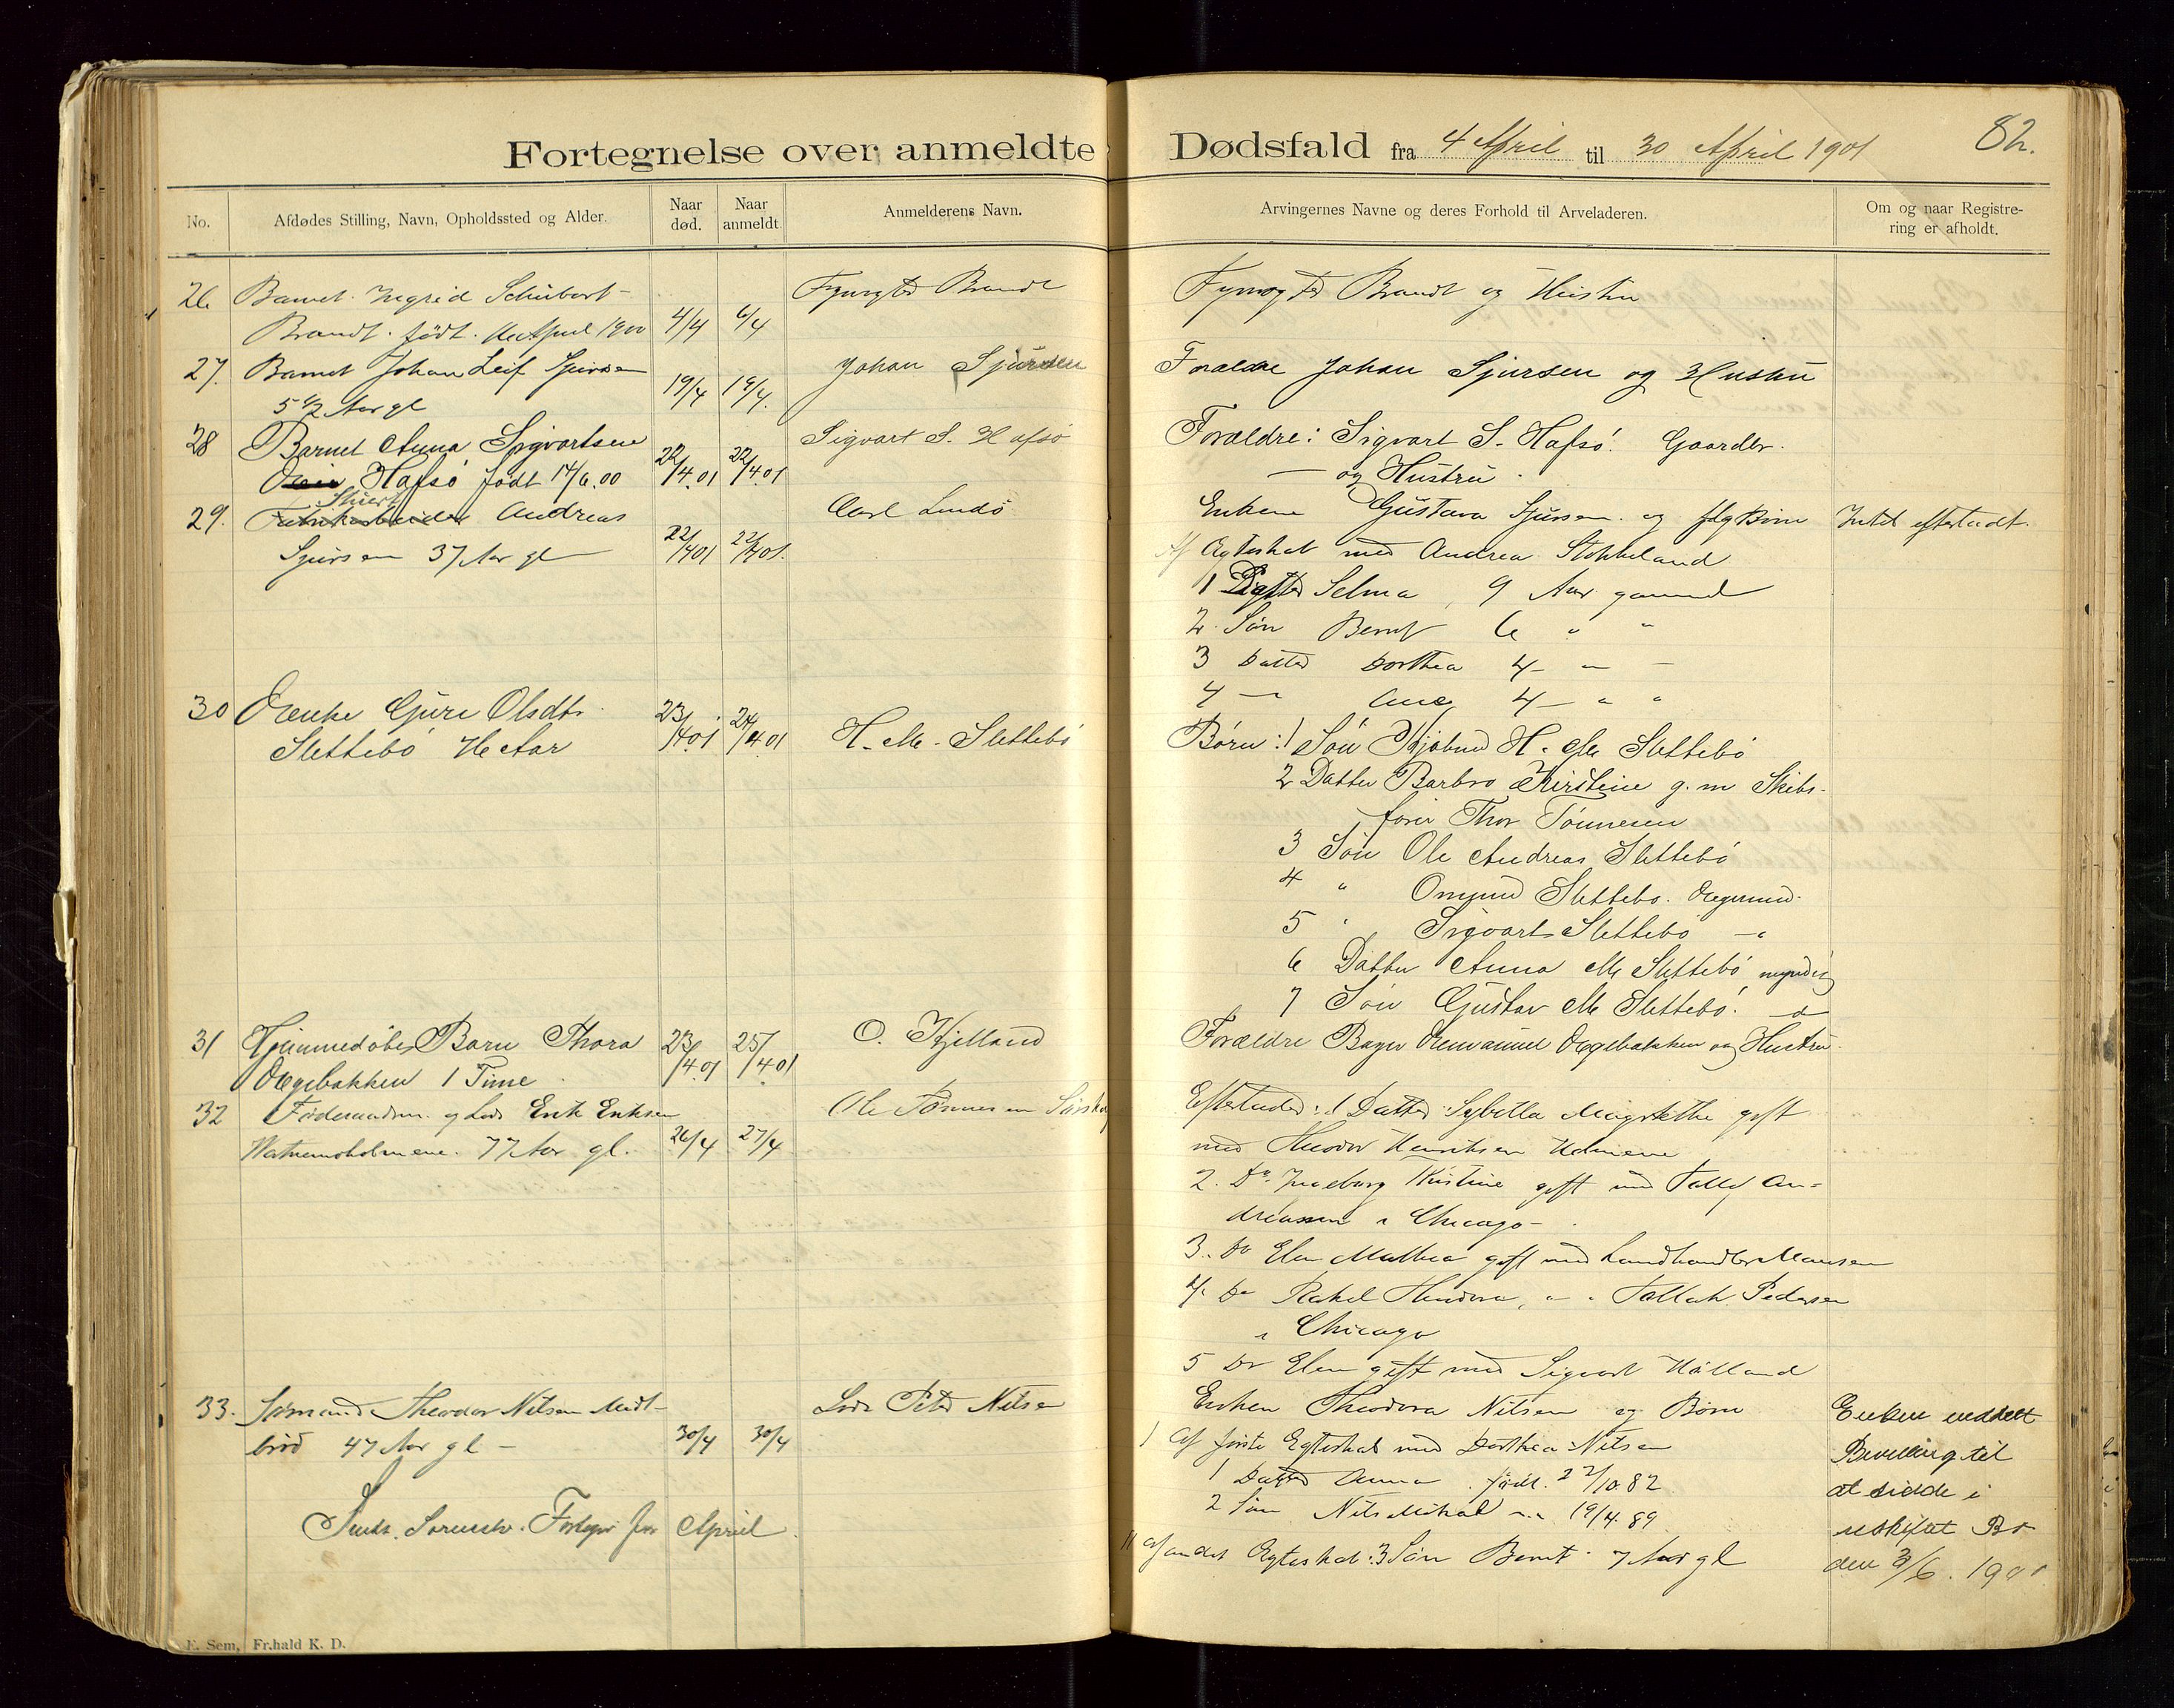 Fortegnelse over anmeldte Dødsfald fra 4 April til 30 April 1901
82.
No.
Afdødes Stilling, Navn, Opholdssted og Alder.
Naar død.
Naar anmeldt.
Anmelderens Navn.
Arvingernes Navne og deres Forhold til Arveladeren.
Om og naar Registre-
ring er afholdt.
26 Barnet Ingrid Schubert Brandt Fyrvogter Brandt og Hustru
Brandt født April 1900 4/4 6/4
27. Barnet Johan Leif Sjursen Johan Sjursen Forældre Johan Sjursen og Hustru
5 1/2 Aar gl 19/4 19/4.
28 Barnet Anna Sigvartsen Sigvart S. Hafsø Forældre: Sigvart S. Hafsø. Gaardbr.
Hafsø født 14/6.00 22/4.01 22/4.01 — og Hustru.
Stuert
29. Fabrikarbeider Andreas Carl Lindø Enken Gustava Sjursen og flg Børn Intet efterladt.
Sjursen 37 Aar gl 22/4 01 22/4 01. Af Egteskab med Andrea Stokkeland
1 Datter Selma, 9 Aar gammel
2. Søn Bernt 6 " "
3 Datter Dorthea 4 — " —
4 — Ane 4 — " "
30 Enke Guri Olsdtr. 23/4 01 24/4 01 H. M. Slettebø
Slettebø Aar
Børn: 1 Søn H. M Slettebø
2 Datter Barbro Kirstine g. m Skibs-
fører Thor Tønnesen
3 Søn Ole Andreas Slettebø
4 " Omund Slettebø. Egersund.
5 " Sigvart Slettebø — "
6 Datter Anna M Slettebø myndig
7 Søn Gustav M Slettebø. —
31 Hjemmedøbt Barn Thora 23/4 01 25/4 01 O. Kjelland Forældre Bager Emanuel Egebakken og Hustru.
Egebakken 1 Time
32 Føderaadsm. og Lods Erik Eriksen Ole Tønnesen Efterlader: 1 Datter Sybilla Margrethe gift
Vatnemoholmene. 77 Aar gl. 26/4 27/4 med Theodor Henriksen
2. Do. Ingeborg Kristine gift med Tollef An=
dreassen i Chicago —
3. Do Elen Mathea gift med Landhandler
4. Do Rakel Theodora, " " Tollak Pedersen
i Chicago
5 Do Elen gift med Sigvart Hålland
33. Sømand Theodor Nilsen Midt- Lods Peder Nilsen Enken Theodora Nilsen og Børn
brød 47 Aar gl — 30/4 30/4
I af første Egteskab med Dorthea Nilsen
1 Datter Anna født. 22/10.82
2 Søn Nils Mikal " " 19/4.89
II af andet Egteskab: 3 Søn Bernt 7 Aar gl
Enken meddelt
Bevilling til
at sidde i
uskiftet Bo
den 3/6. 1901
Sendt Sorensk. Fortegn for April.
E. Sem, Fr.hald K. D.